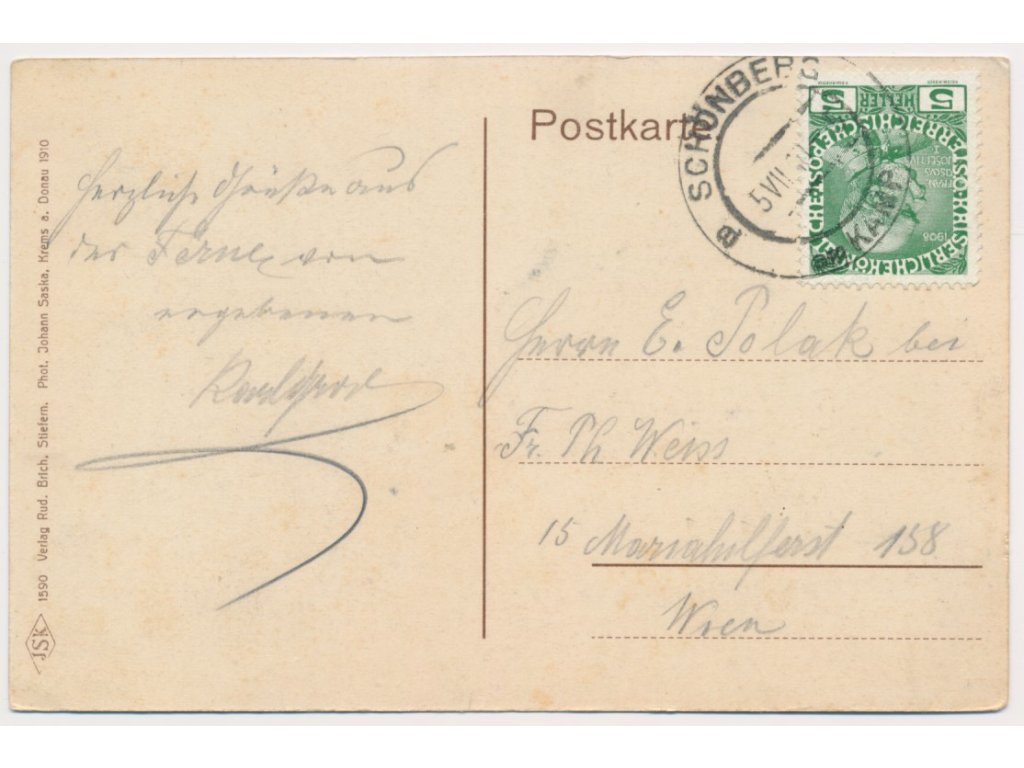 Postkarte
SCHÖNBERG
KAMP
5 VII
5 HELLER 5
KAISERLICHE KÖNIGLICHE ÖSTERREICHISCHE POST
FRANZ JOSEPH I
1908
Herzliche Grüße aus
der Ferne von
ergebenen
Herrn E. Polak bei
Fr. Th. Weiss
15 Mariahilferst 158
Wien
JSK 1590 Verlag Rud. Brich, Stiefern. Phot. Johann Saska, Krems a. Donau 1910